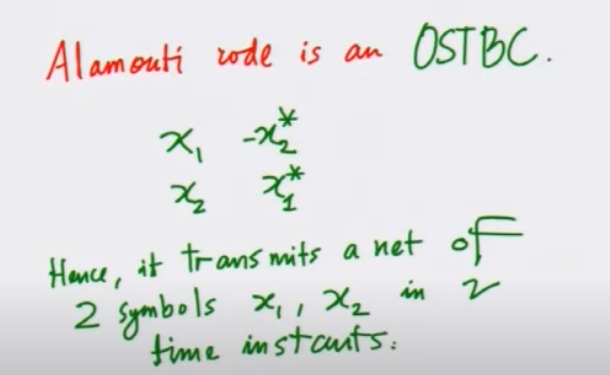 Alamouti code is an OSTBC.
x₁ -x₂*
x₂ x₁*
Hence, it transmits a net of
2 symbols x₁, x₂ in 2
time instants.